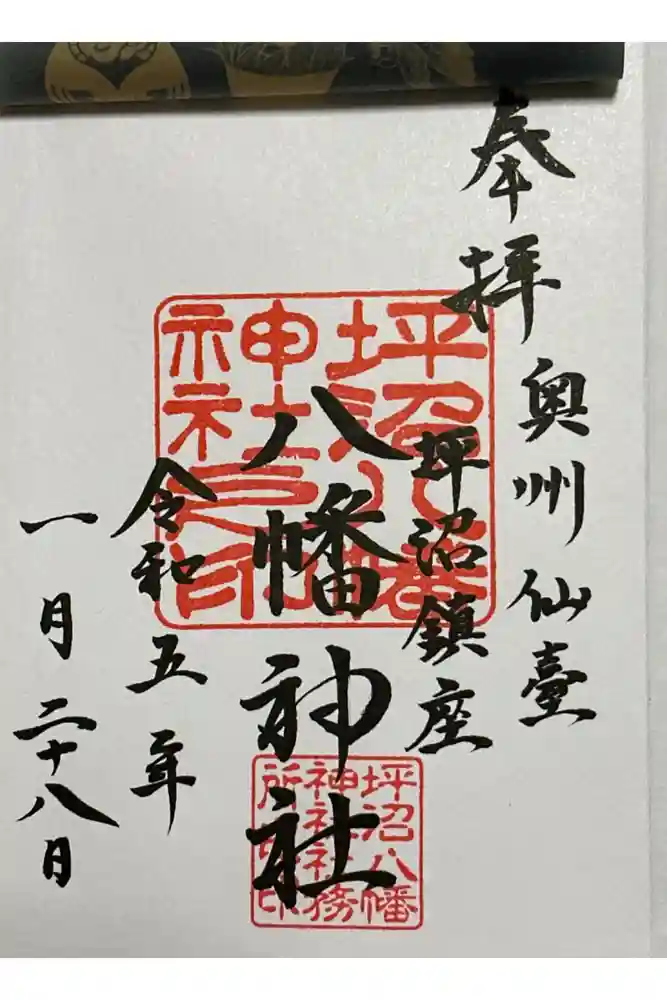 奉拝
奥州仙臺
坪沼鎮座
八幡神社
令和五年
一月二十八日
坪沼八幡
神社
神社社務
所
印